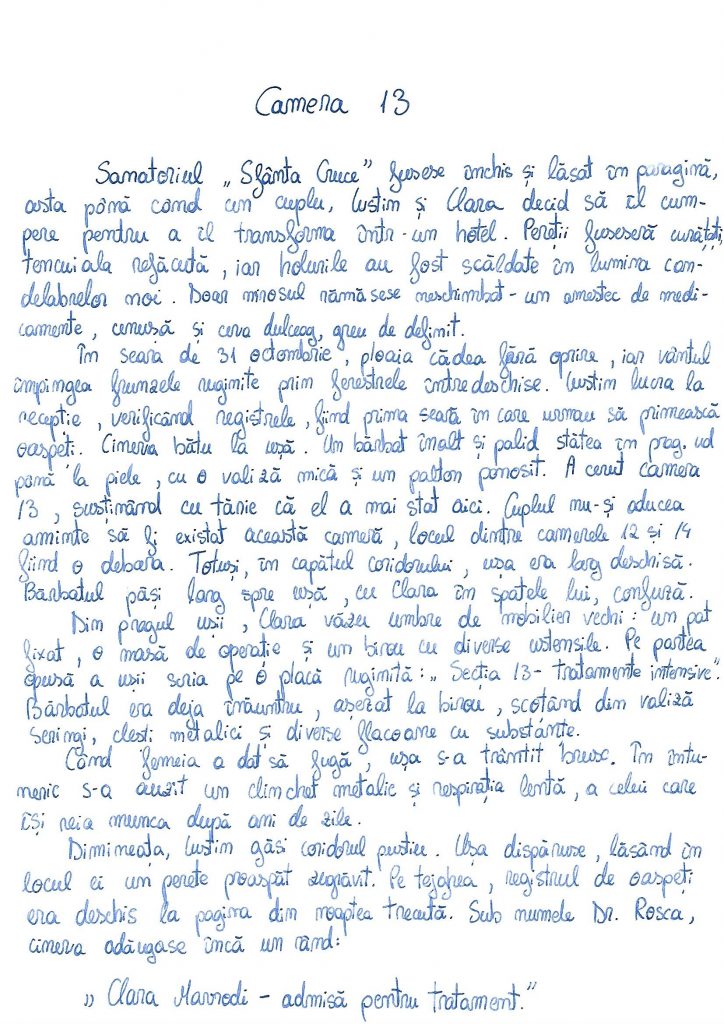 Camera 13
Sanatoriul „Sfânta Cruce” fusese închis și lăsat în paragină,
asta până când un cuplu, Iustin și Clara decid să îl cum-
pere pentru a îl transforma într-un hotel. Pereții fuseseră curățați,
tencuiala refăcută, iar holurile au fost scăldate în lumina can-
delabrelor noi. Doar mirosul rămăsese neschimbat - un amestec de medi-
camente, cenușă și ceva dulceag, greu de definit.
În seara de 31 octombrie, ploaia cădea fără oprire, iar vântul
împingea frunzele ruginite prin ferestrele întredeschise. Iustin lucra la
recepție, verificând registrele, fiind prima seară în care urmau să primească
oaspeți. Cineva bătu la ușă. Un bărbat înalt și palid stătea în prag, ud
până la piele, cu o valiză mică și un palton ponosit. A cerut camera
13, susținând cu tărie că el a mai stat aici. Cuplul nu-și aducea
aminte să fi existat această cameră, locul dintre camerele 12 și 14
fiind o debara. Totuși, în capătul coridorului, ușa era larg deschisă.
Bărbatul păși larg spre ușă, cu Clara în spatele lui, confuză.
Din pragul ușii, Clara văzu umbre de mobilier vechi: un pat
fixat, o masă de operație și un birou cu diverse ustensile. Pe partea
opusă a ușii scria pe o placă ruginită: „Secția 13 - tratamente intensive”.
Bărbatul era deja înăuntru, așezat la birou, scotând din valiză
seringi, clești metalici și diverse flacoane cu substanțe.
Când femeia a dat să fugă, ușa s-a trântit brusc. În întu-
neric s-a auzit un clinchet metalic și respirația lentă, a celui care
își reia munca după ani de zile.
Dimineața, Iustin găsi coridorul pustiu. Ușa dispăruse, lăsând în
locul ei un perete proaspăt zugrăvit. Pe tejghea, registrul de oaspeți
era deschis la pagina din noaptea trecută. Sub numele Dr. Rosca,
cineva adăugase încă un rând:
„Clara Mavrodi - admisă pentru tratament.”